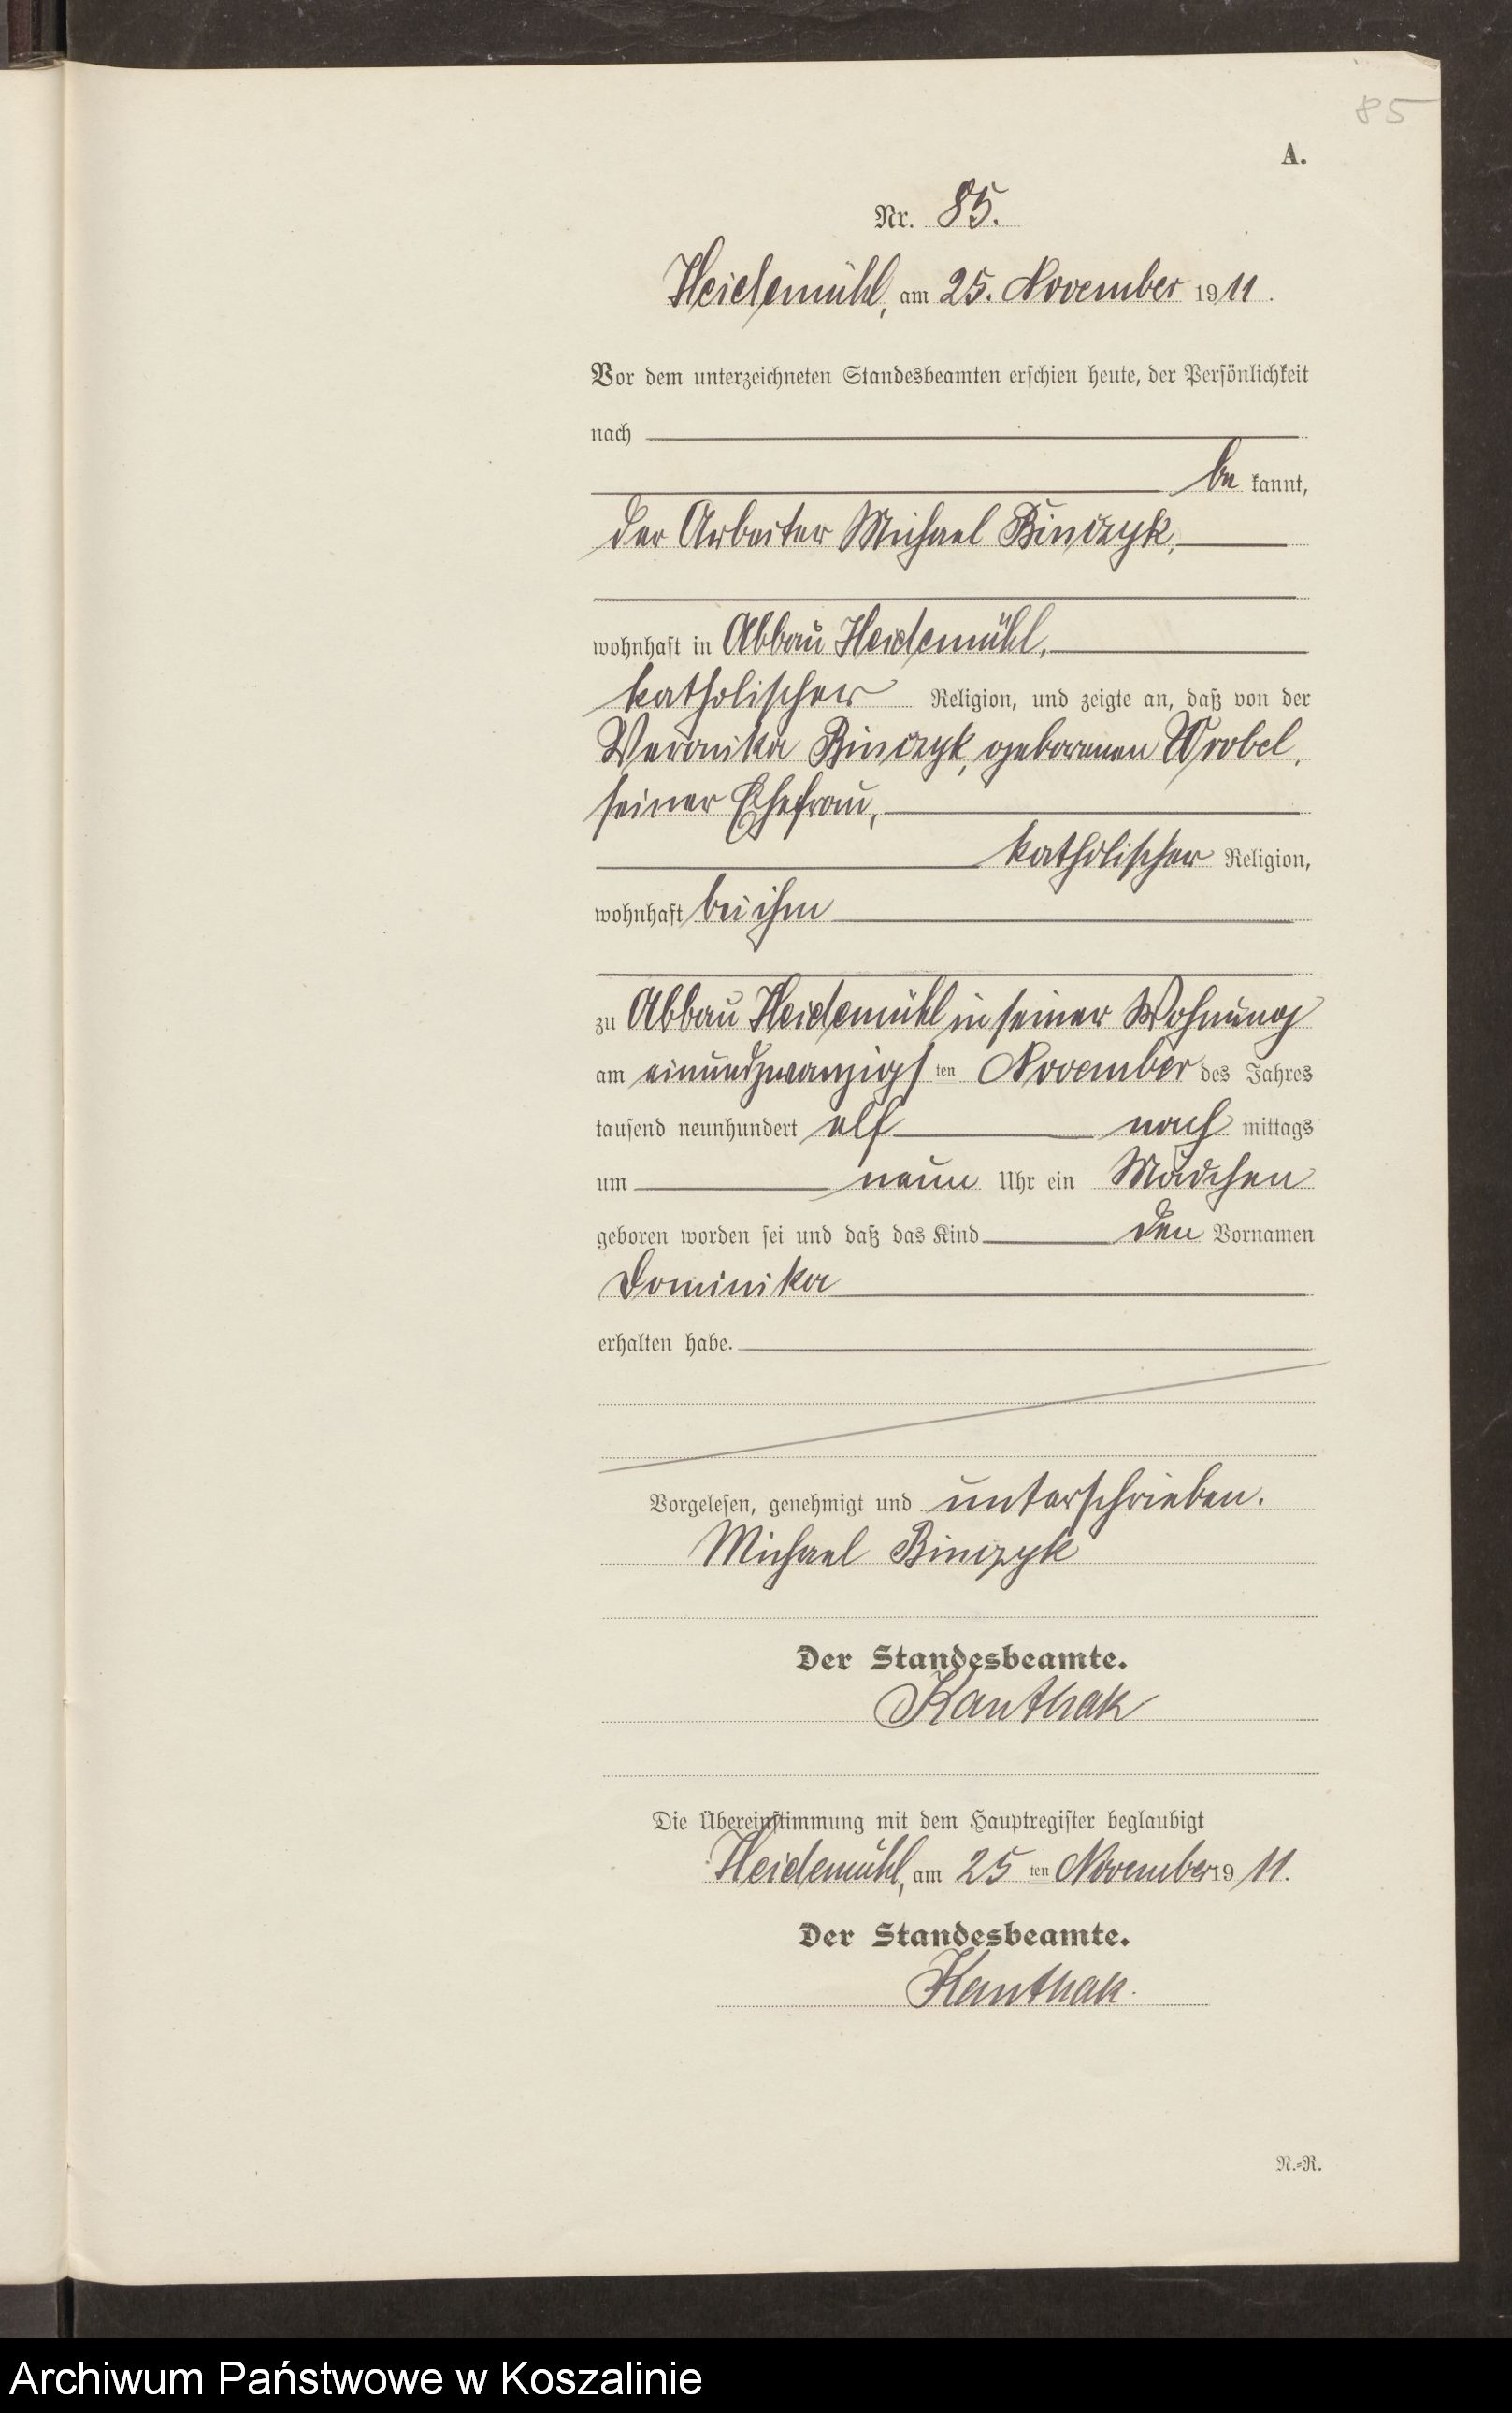 85
A.
Nr. 85.
Heidemühl, am 25. November 1911.
Vor dem unterzeichneten Standesbeamten erschien heute, der Persönlichkeit
nach
be kannt,
der Arbeiter Michael Binczyk,
wohnhaft in Abbau Heidemühl,
katholischer Religion, und zeigte an, daß von der
Veronika Binczyk, geborenen Wrobel,
seiner Ehefrau,
katholischer Religion,
wohnhaft bei ihm
zu Abbau Heidemühl in seiner Wohnung
am einundzwanzigsten November des Jahres
tausend neunhundert elf nach mittags
um neun Uhr ein Mädchen
geboren worden sei und daß das Kind den Vornamen
Dominika
erhalten habe.
Vorgelesen, genehmigt und unterschrieben.
Michael Binczyk
Der Standesbeamte.
Kanthak
Die Übereinstimmung mit dem Hauptregister beglaubigt
Heidemühl, am 25ten November 1911.
Der Standesbeamte.
Kanthak.
N.=R.
Archiwum Państwowe w Koszalinie